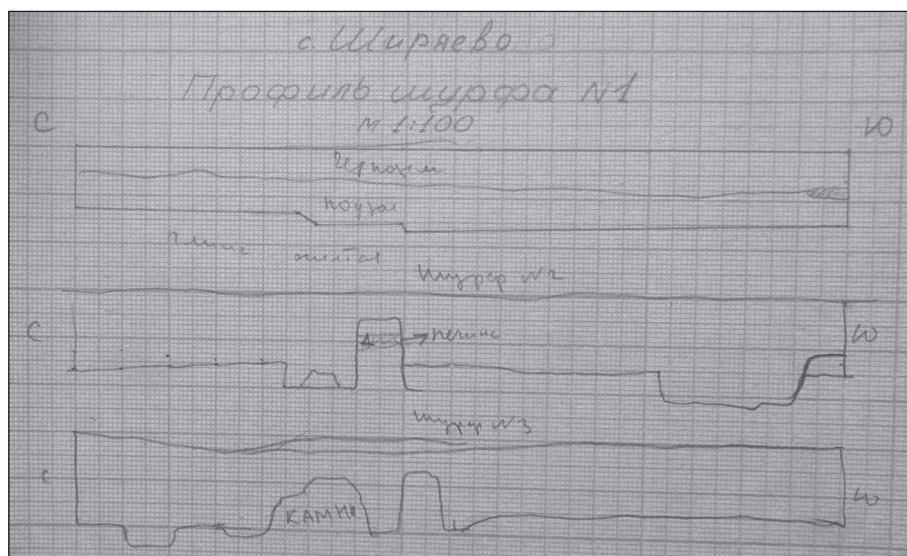 с. Ширяево
Профиль шурфа N1
м 1:100
С Ю
Чернозем
подзол
глина желтая
Шурф N2
С Ю
печина
Шурф N3
С Ю
КАМНИ